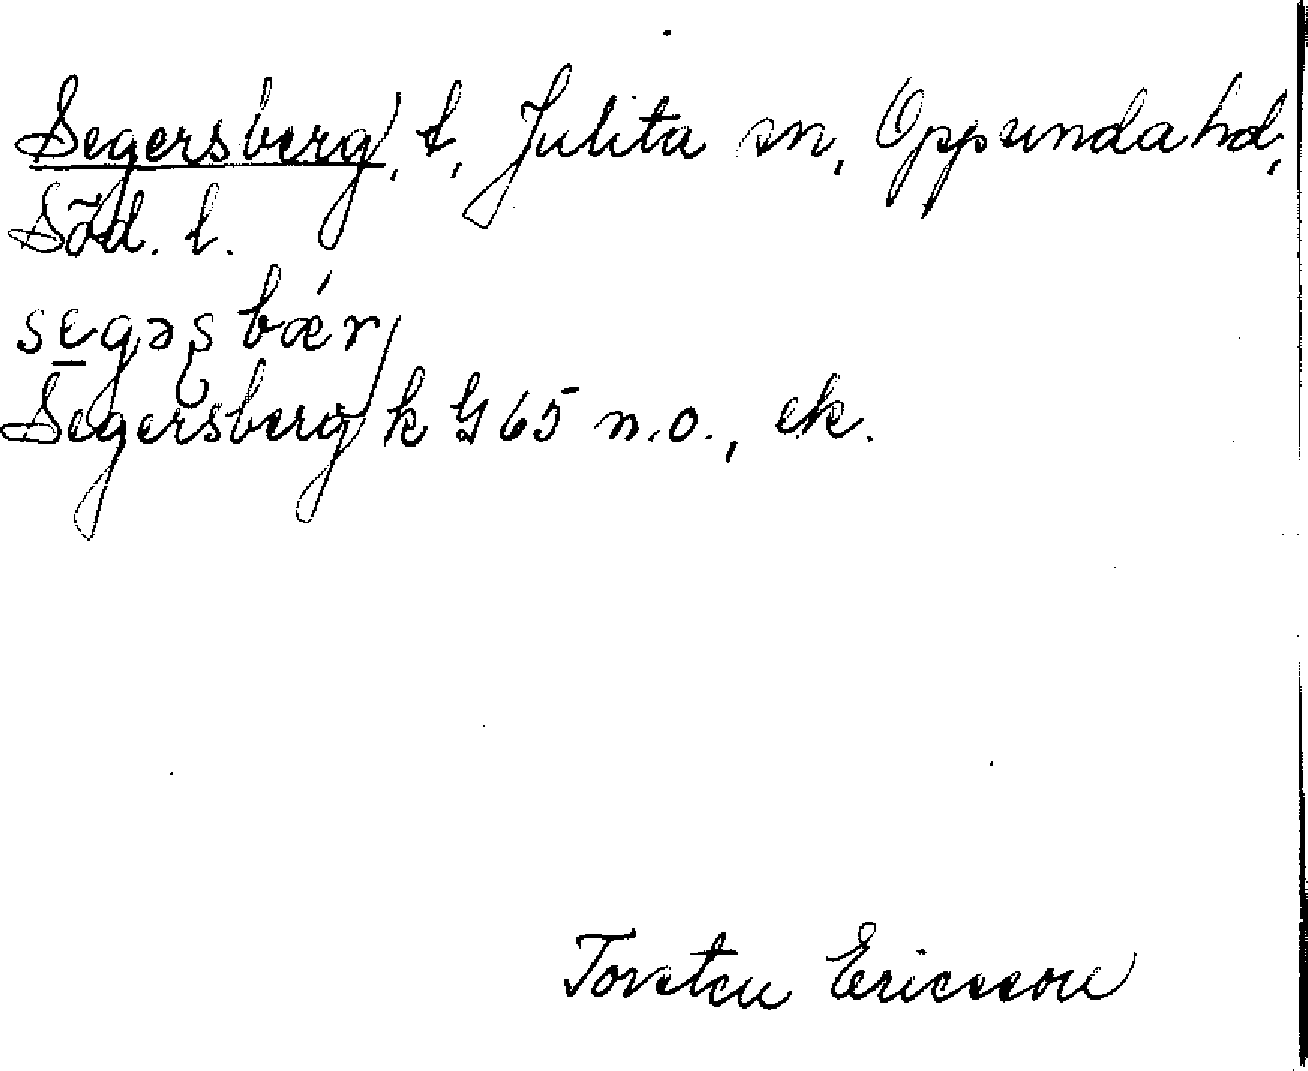 Segersberg, t, Julita sn, Oppunda hd,
Söd. l.
segəʂbǽr
Segersberg k G 65 n.o., ek.
Torsten Ericsson